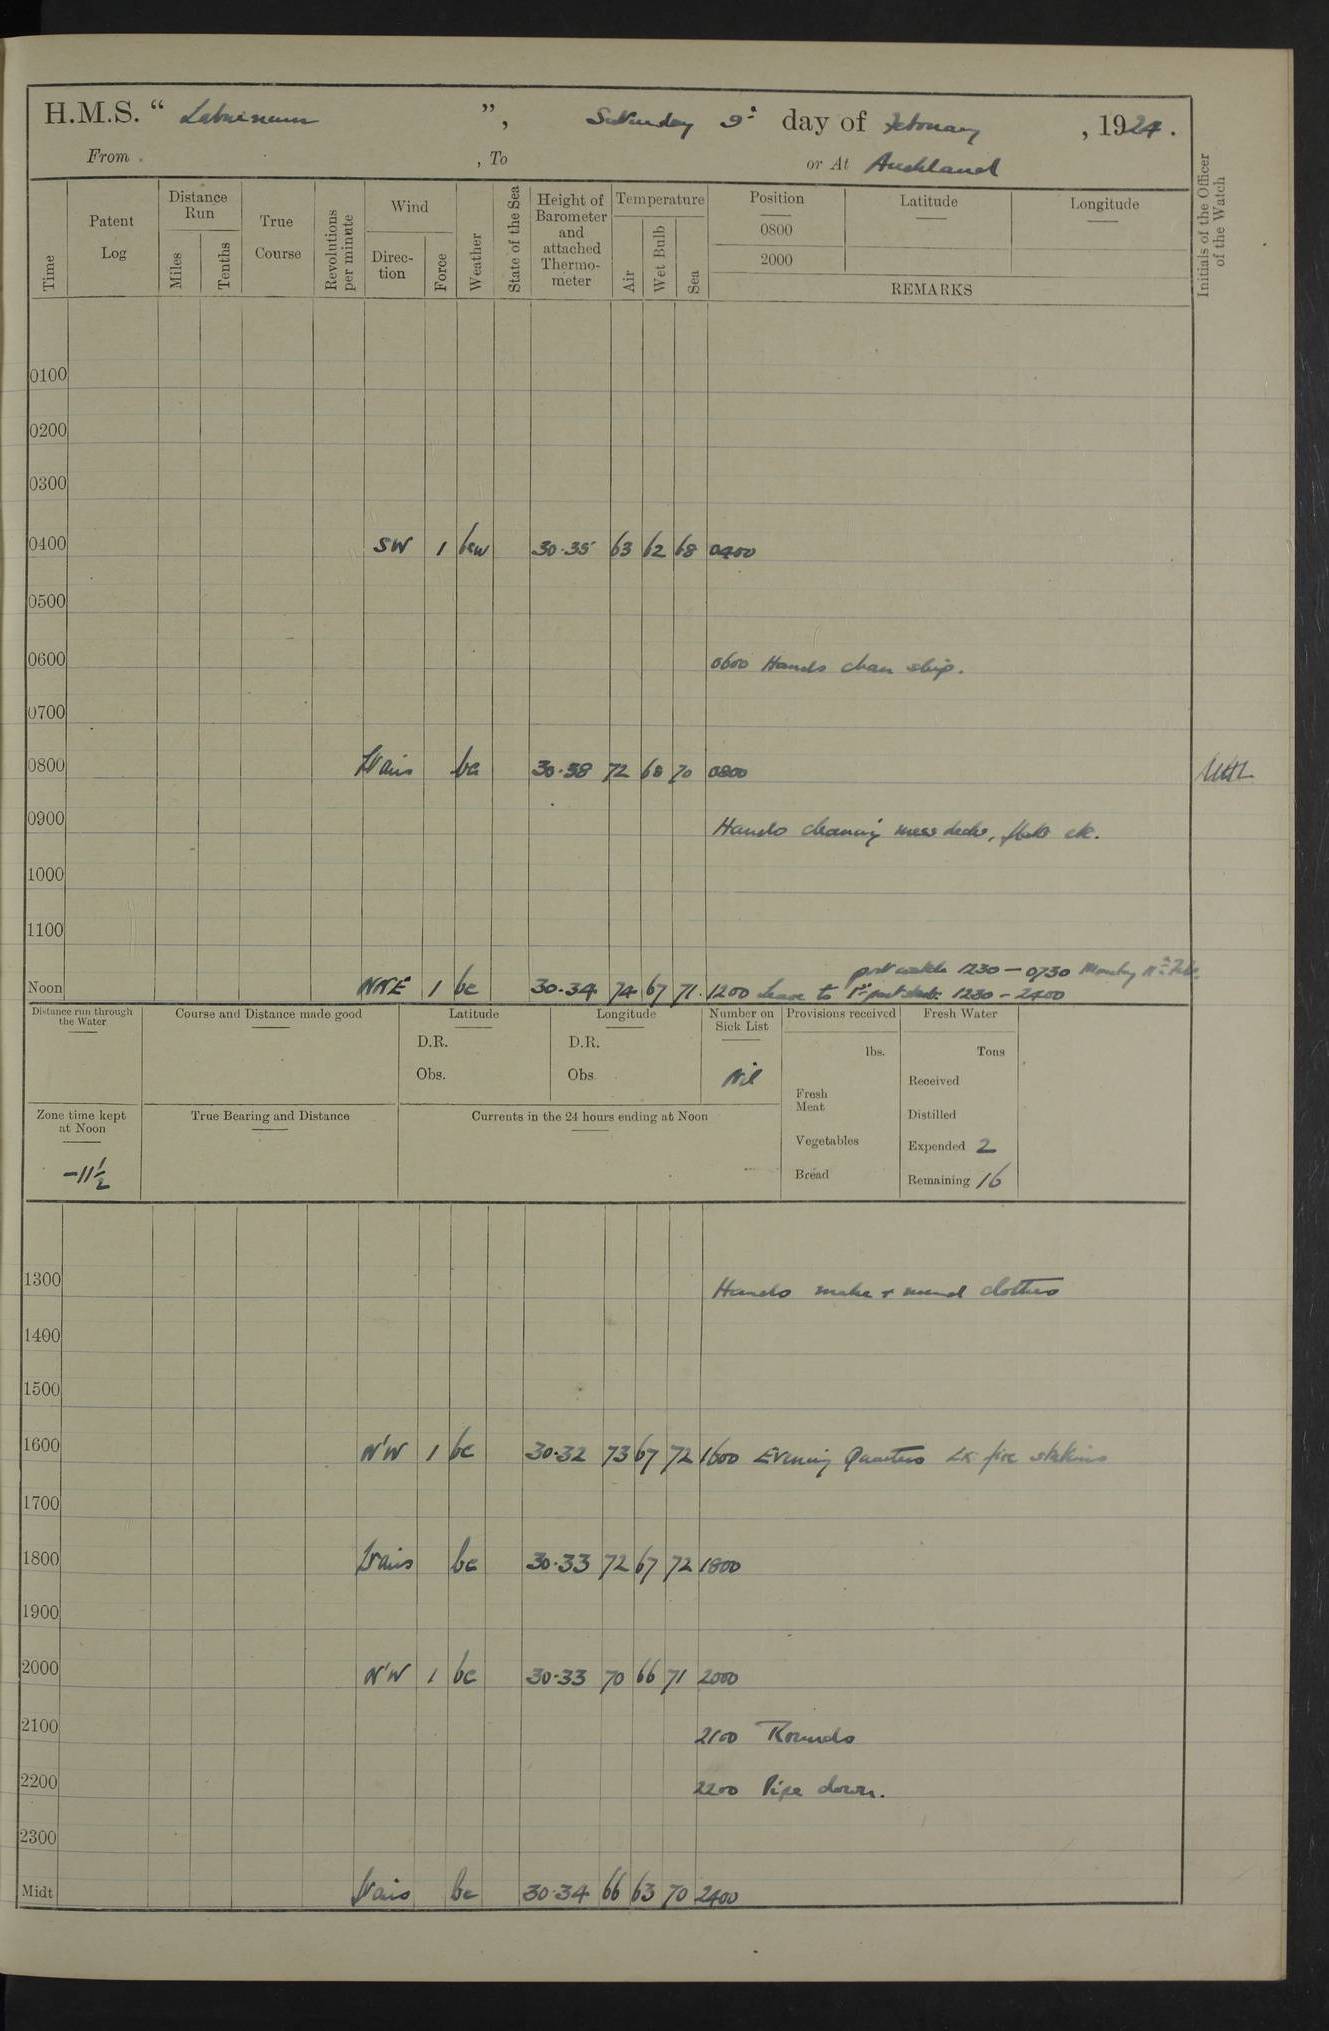 H.M.S. “ Laburnum ”, Saturday 9th day of February , 1924.
From , To or At Auckland
Time
Patent Log
Distance Run
Miles
Tenths
True Course
Revolutions per minute
Wind
Direc-tion
Force
Weather
State of the Sea
Height of Barometer and attached Thermo-meter
Temperature
Air
Wet Bulb
Sea
Position
Latitude
Longitude
0800
2000
REMARKS
Initials of the Officer of the Watch
0100
0200
0300
0400 SW 1 bcw 30.35 63 62 68 0400
0500
0600 0600 Hands clean ship.
0700
0800 Vairs bc 30.38 72 68 70 0800
0900 Hands cleaning mess decks, flats etc.
1000
1100
port watch 1230 – 0730 Monday 11th Feb.
Noon NNE 1 bc 30.34 74 67 71 1200 Leave to 1st part starb. 1230 – 2400
Distance run through the Water
Course and Distance made good
Latitude
D.R.
Obs.
Longitude
D.R.
Obs.
Number on Sick List
Nil
Provisions received
lbs.
Fresh Meat
Vegetables
Bread
Fresh Water
Tons
Received
Distilled
Expended 2
Remaining 16
Zone time kept at Noon
-11½
True Bearing and Distance
Currents in the 24 hours ending at Noon
1300 Hands make + mend clothes
1400
1500
1600 N'W 1 bc 30.32 73 67 72 1600 Evening Quarters Ex fire stations
1700
1800 Vairs bc 30.33 72 67 72 1800
1900
2000 N'W 1 bc 30.33 70 66 71 2000
2100 2100 Rounds
2200 2200 Pipe down.
2300
Midt Vairs bc 30.34 66 63 70 2400